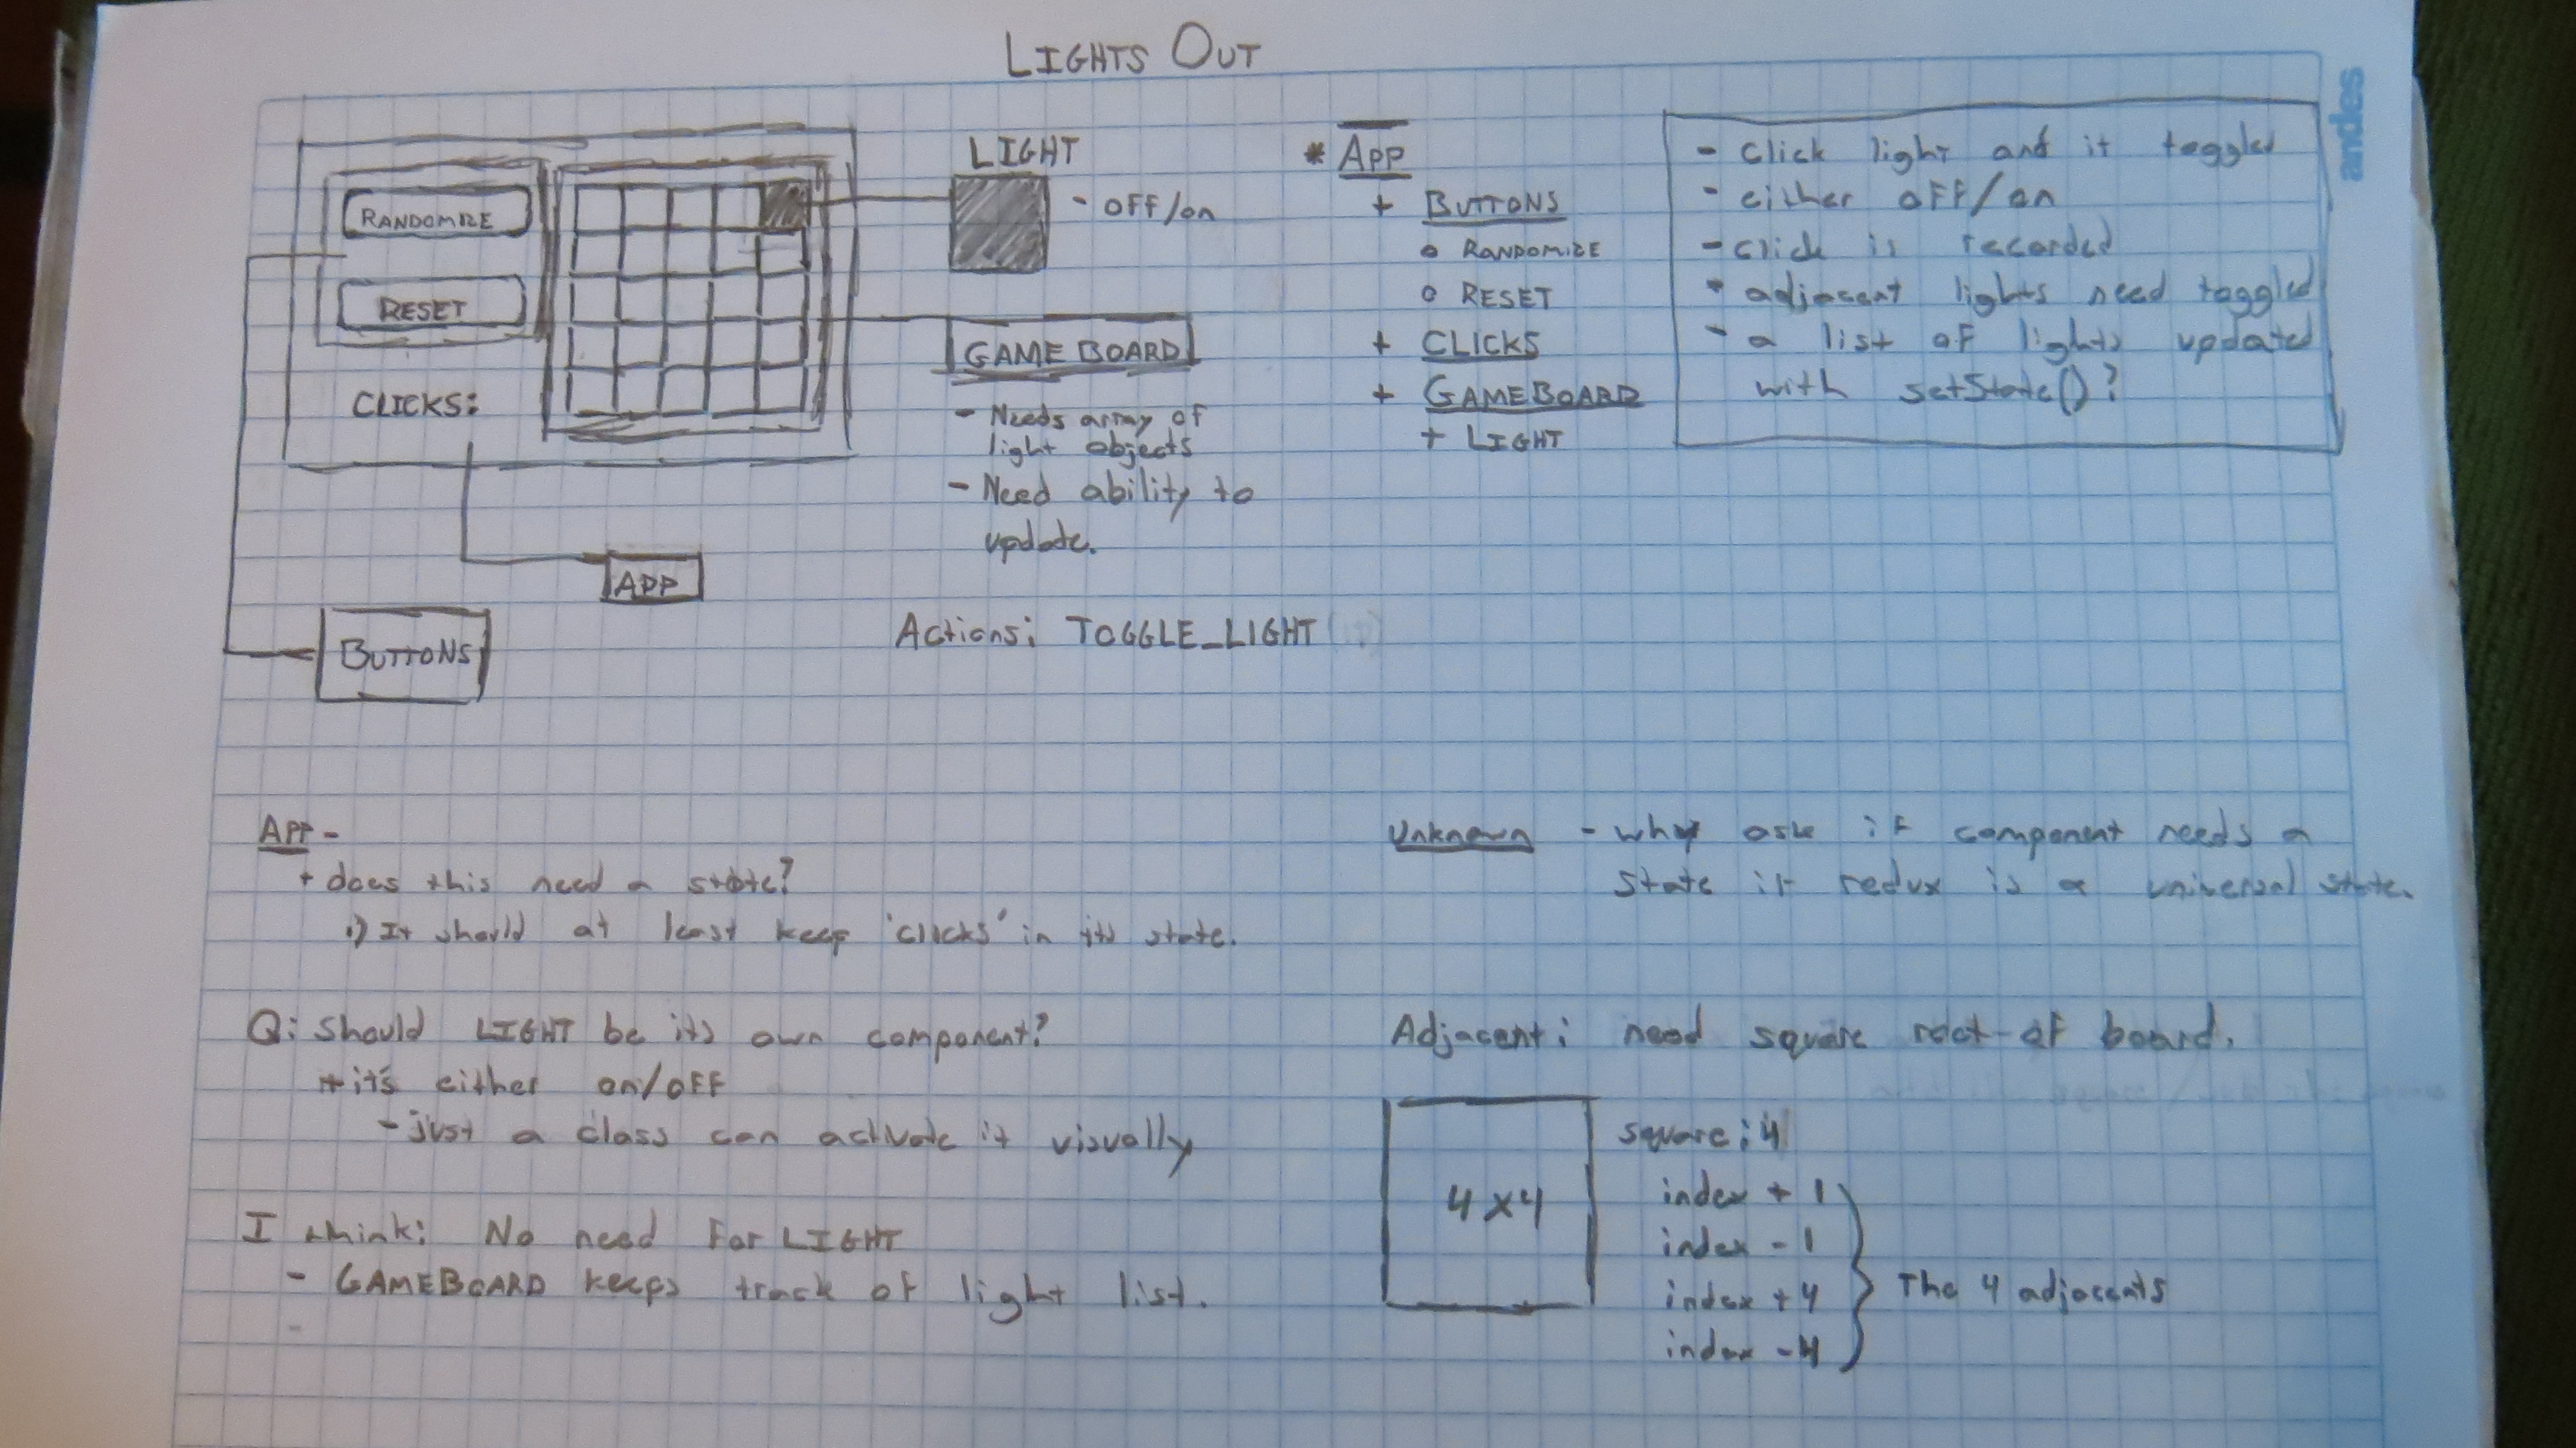 LIGHTS OUT
andes
RANDOMIZE
RESET
CLICKS:
LIGHT
- OFF/on
GAME BOARD
- Needs array of
light objects
- Need ability to
update.
APP
BUTTONS
Actions: TOGGLE_LIGHT
* APP
+ BUTTONS
o RANDOMIZE
o RESET
+ CLICKS
+ GAMEBOARD
+ LIGHT
- click light and it toggled
- either off/on
- click is recorded
* adjacent lights need toggled
- a list of lights updated
with setState()?
APP -
+ does this need a state?
i) It should at least keep 'clicks' in its state.
Q: Should LIGHT be its own component?
+ it's either on/OFF
- just a class can activate it visually
I think: No need for LIGHT
- GAMEBOARD keeps track of light list.
-
Unknown - why ask if component needs a
state if redux is a universal state.
Adjacent: need square root of board.
4 x 4
square: 4
index + 1
index - 1
index + 4
index - 4
The 4 adjacents